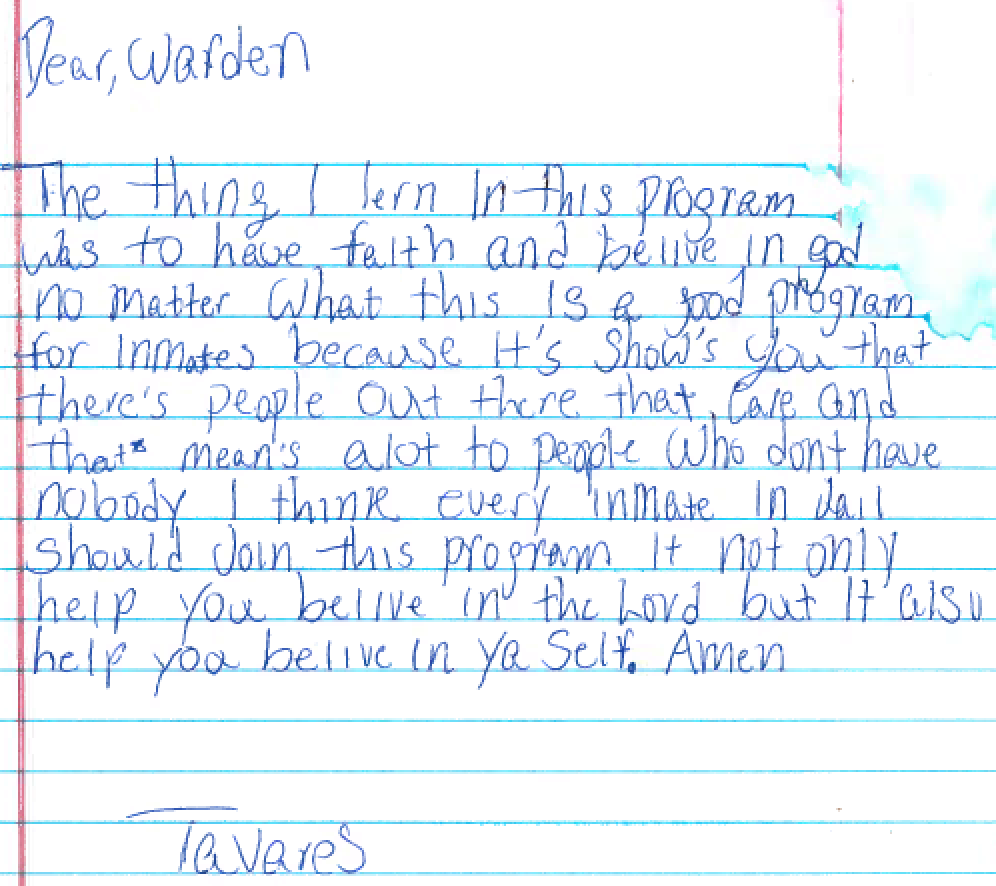 Dear, Warden
The thing I lern In this program
was to have faith and belive in god
no matter what this Is a good program
for Inmates because It's show's you that
there's people out there that care and
that's mean's alot to people who dont have
nobody I think every inmate In Jail
should Join this program It not only
help you belive in the Lord but It also
help you belive in ya self. Amen
Tavares